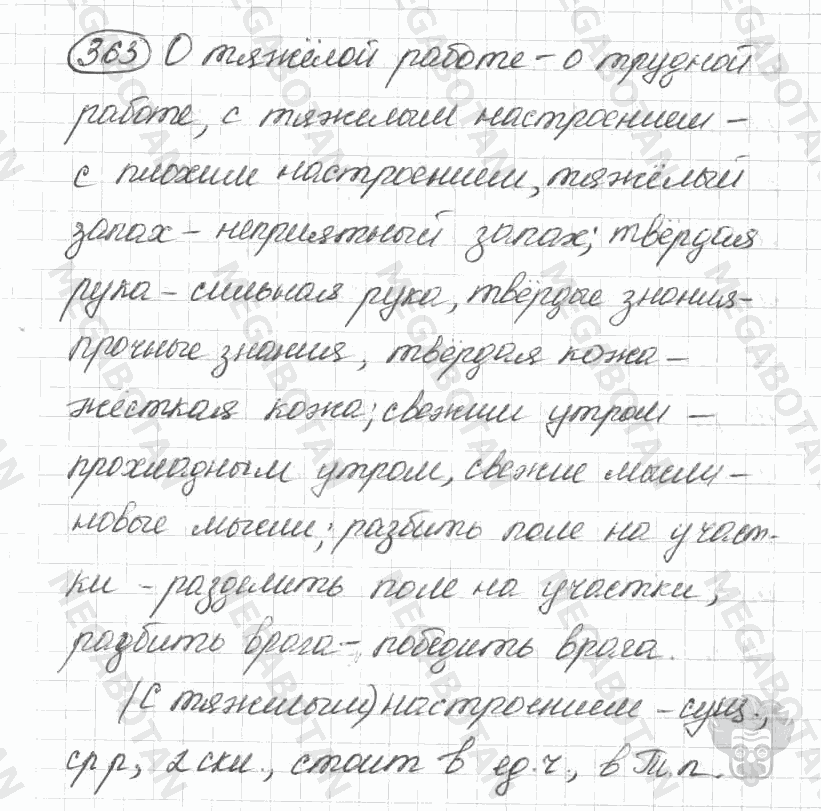 363 О тяжёлой работе – о трудной
работе, с тяжелым настроением –
с плохим настроением, тяжёлый
запах – неприятный запах; твёрдая
рука – сильная рука, твёрдые знания –
прочные знания, твёрдая кожа –
жёсткая кожа; свежим утром –
прохладным утром, свежие мысли –
новые мысли; разбить поле на участ-
ки – разделить поле на участки,
разбить врага – победить врага.
(С тяжелым) настроением – сущ.,
ср р, 2 скл., стоит в ед.ч., в Т.п.
MEGABOTAN